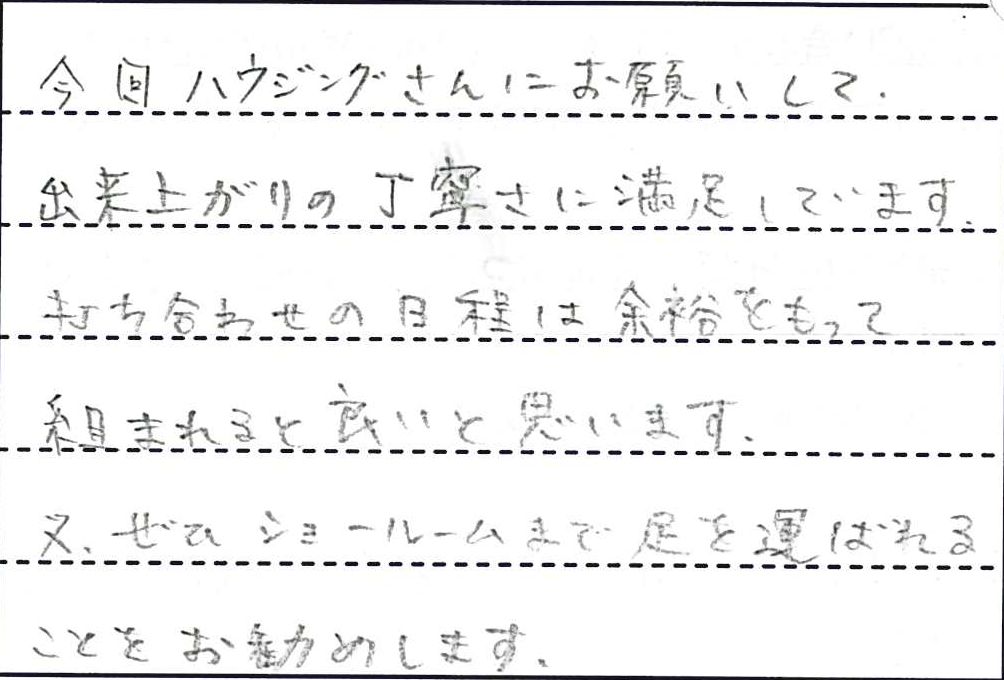 今回ハウジングさんにお願いして、
出来上がりの丁寧さに満足しています。
打ち合わせの日程は余裕をもって
組まれると良いと思います。
又、ぜひショールームまで足を運ばれる
ことをお勧めします。